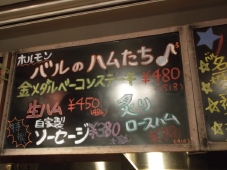 ホルモン
バルのハムたち♪
金メダルベーコンステーキ ¥480
(518)
生ハム ¥450 炙り
自家製 ロースハム
ソーセージ ¥380